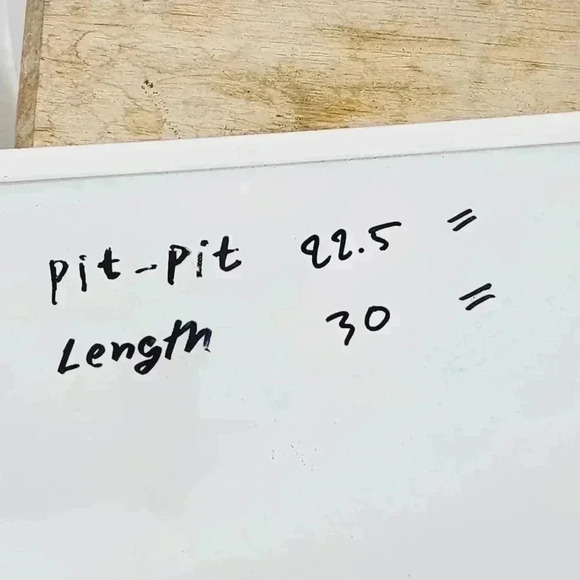 Pit-Pit 22.5 =
Length 30 =